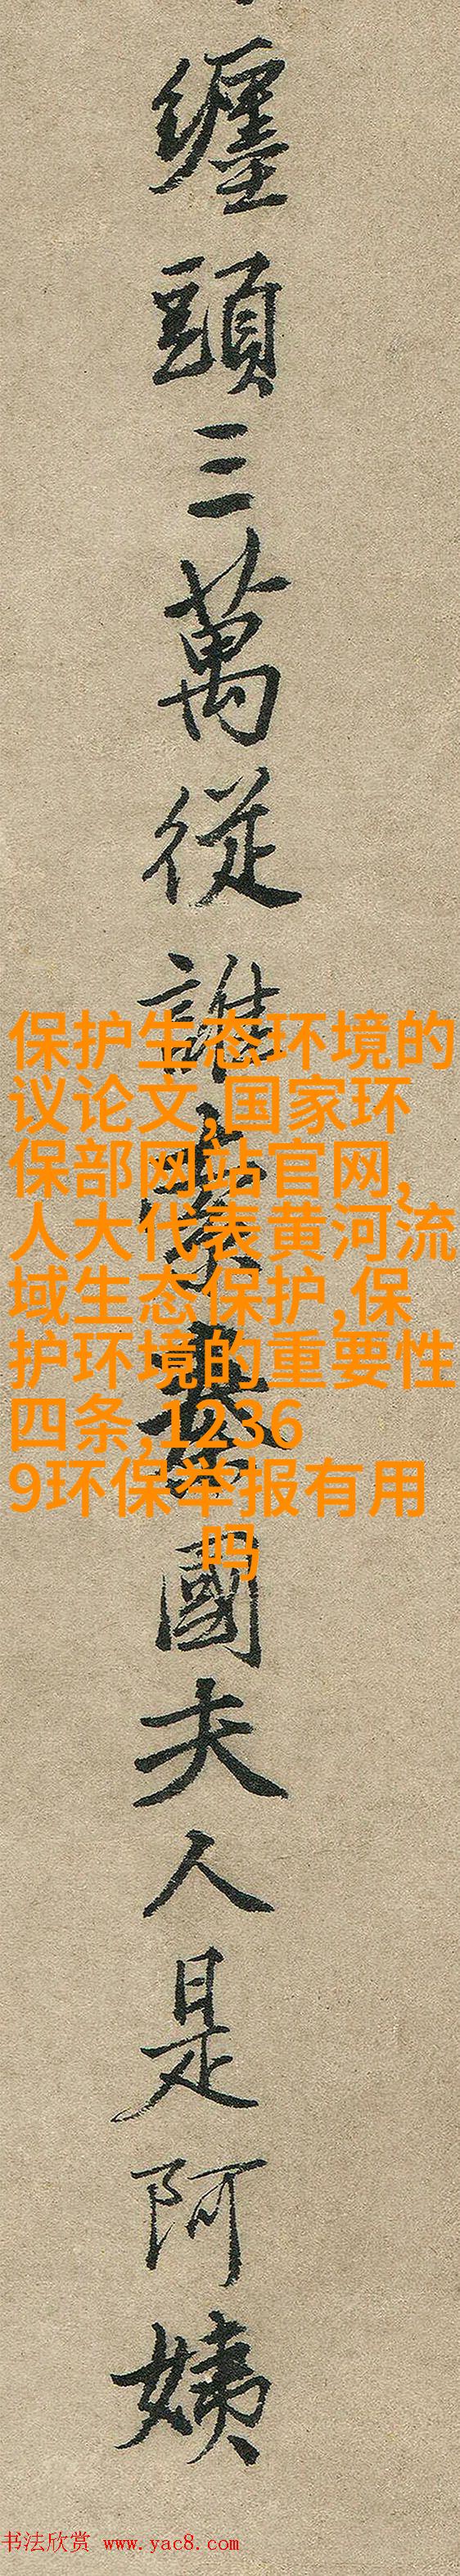 纏頭三萬從誰索秦國夫人是阿姨
保护生态环境的
议论文,国家环
保部网站官网,
人大代表黄河流
域生态保护,保
护环境的重要性
四条,1236
9环保举报有用
吗
书法欣赏 www.yac8.com